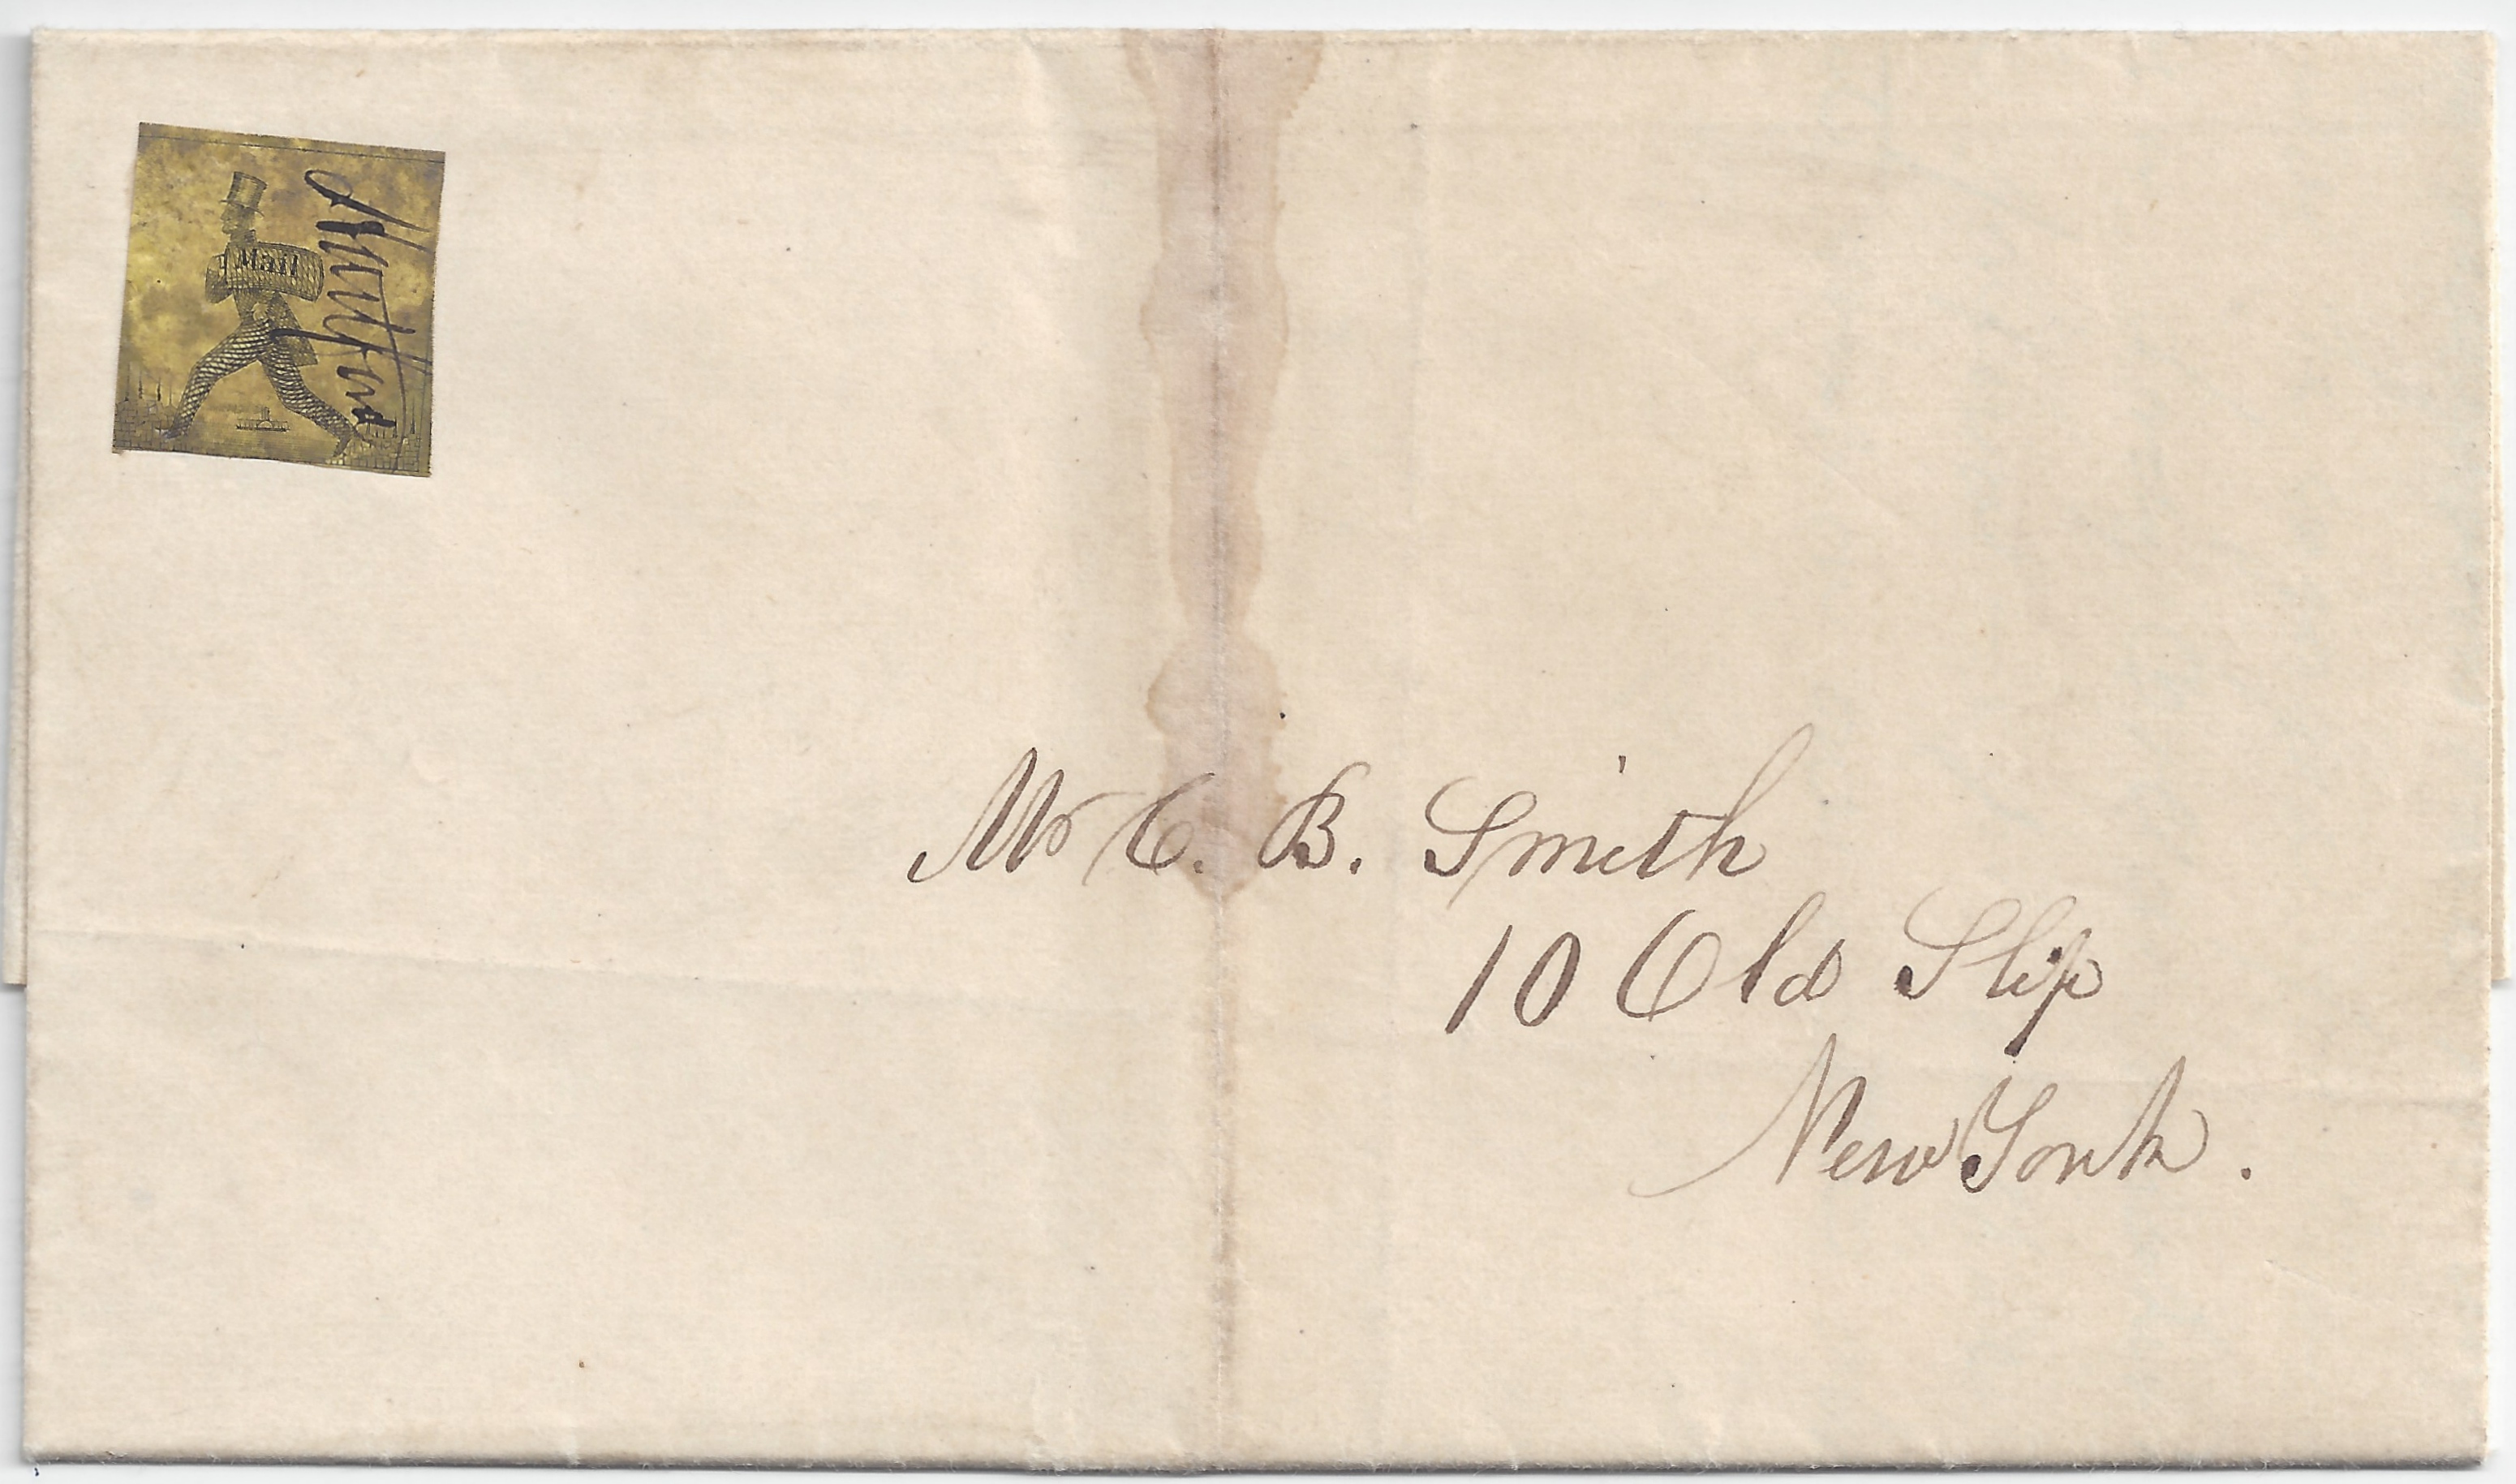 Hartford
Mr C. B. Smith
10 Old Slip
New York.